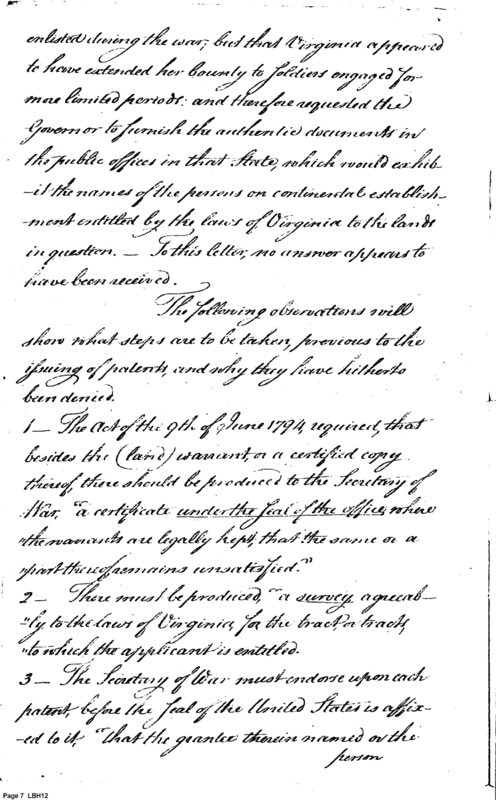 enlisted during the war; but that Virginia appeared
to have extended her bounty to Soldiers engaged for
more limited periods: and therefore requested the
Governor to furnish the authentic documents in
the public offices in that State, which would exhib-
-it the names of the persons on continental establish-
-ment entitled by the laws of Virginia to the lands
in question. — To this letter, no answer appears to
have been received.
The following observations will
show what steps are to be taken, previous to the
issuing of patents, and why they have hitherto
been denied.
1 — The Act of the 9th of June 1794, required, that
besides the (land) warrant, or a certified copy
thereof, there should be produced to the Secretary of
War, "a certificate under the Seal of the office, where
"the warrants are legally kept, that the same or a
"part thereof remains unsatisfied."
2 — There must be produced, "a survey agreeab-
"ly to the laws of Virginia, for the tract or tracts,
"to which the applicant is entitled.
3 — The Secretary of War must endorse upon each
patent, before the Seal of the United States is affix-
-ed to it, "that the grantee therein named or the
person
Page 7 LBH12